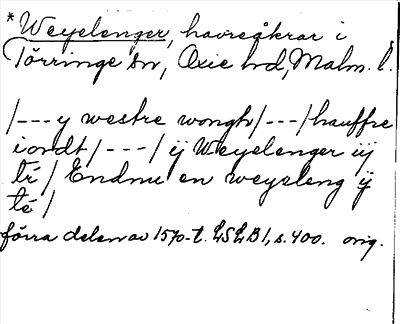 *Weyelenger, havreåkrar i
Törringe sn, Oxie hd, Malm. l.
/---y westre wongh/---/hauffre
iordt/---/ ÿ Weyelenger iij
tr/ Endnu en weyeleng ÿ
té/
förra delen av 1570-t. LSLB1, s. 400. orig.